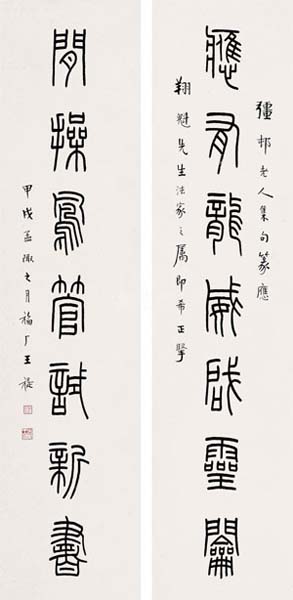 彊邨老人集句篆應
應有龍威啟靈𨷲
翔先生法家之屬即希正
閒操鳳管試新書
甲戌孟陬之月福厂王禔